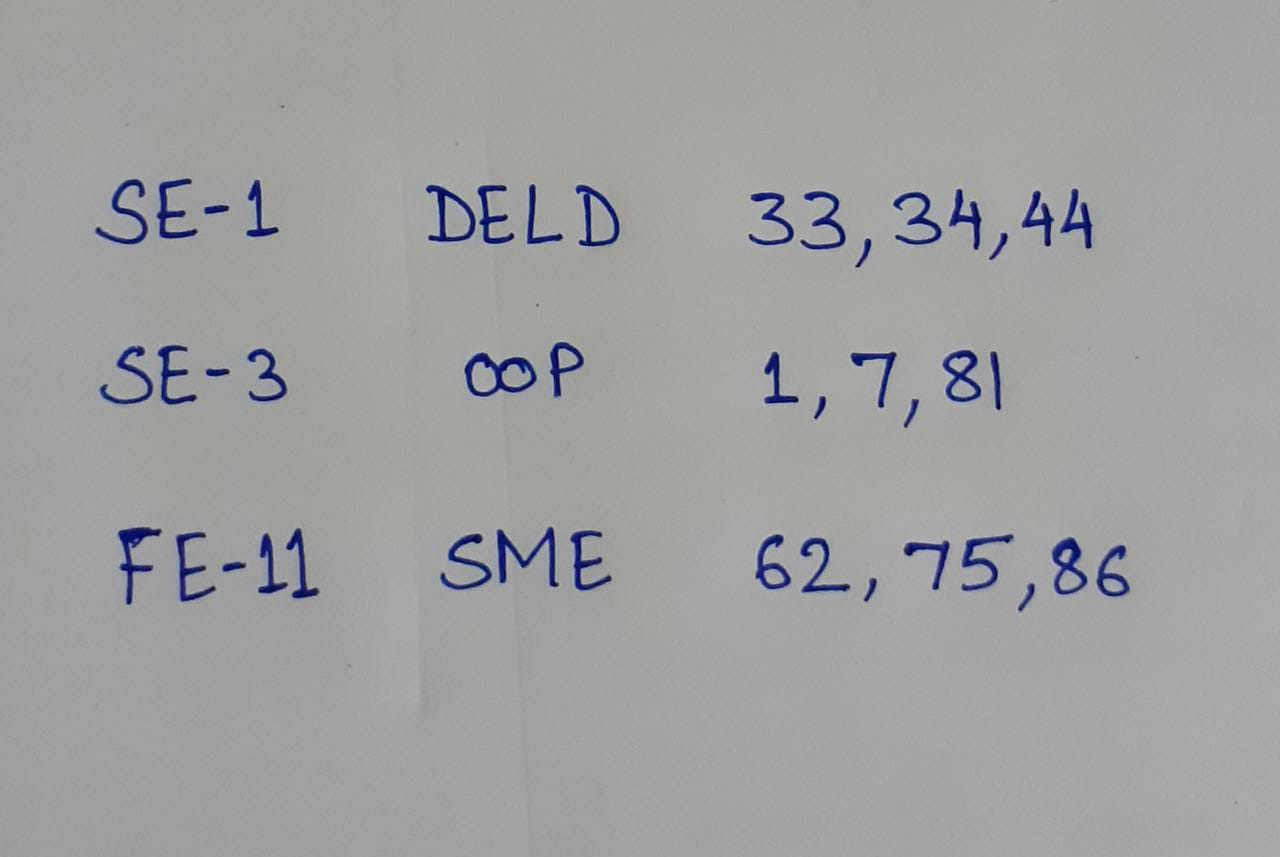 SE-1 DELD 33, 34, 44
SE-3 OOP 1, 7, 81
FE-11 SME 62, 75, 86